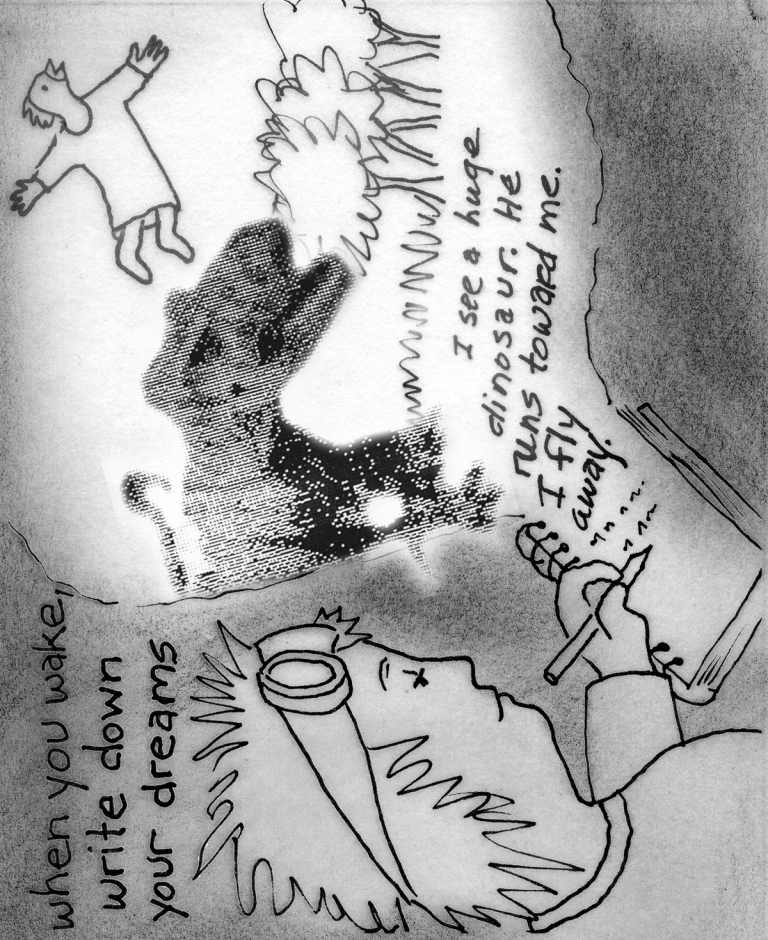 when you wake,
write down
your dreams
I see a huge
dinosaur. He
runs toward me.
I fly
away.